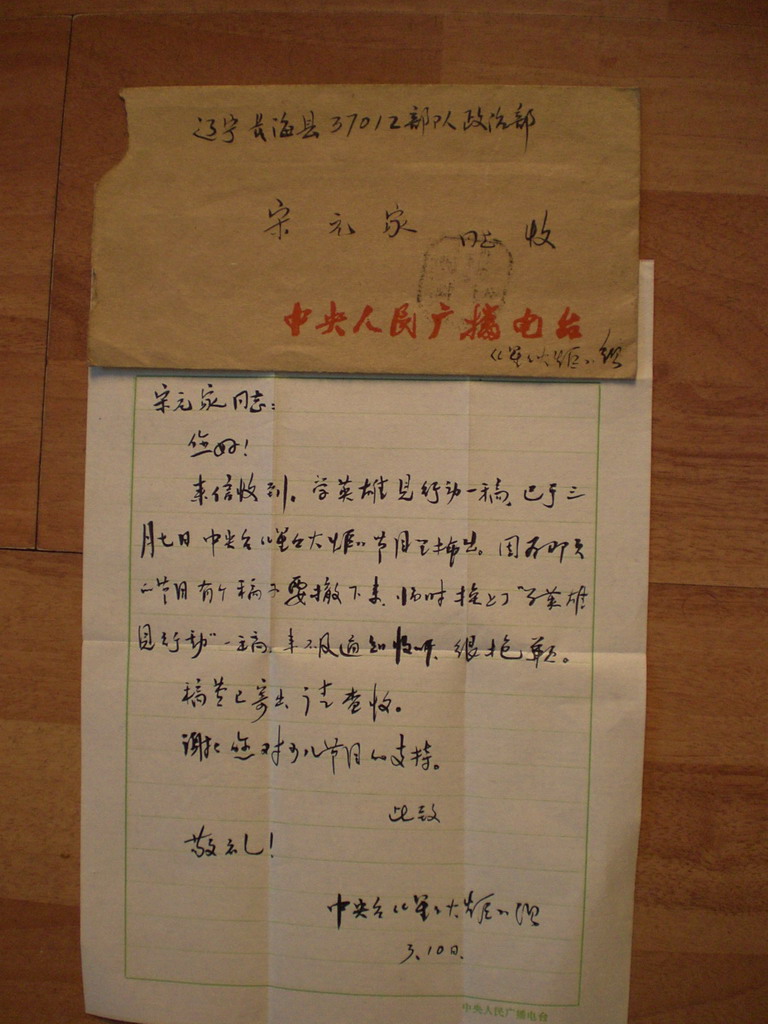 辽宁长海县37012部队政治部
宋元家 同志 收
中央人民广播电台
《星星火炬》组
宋元家同志:
您好!
来信收到。学英雄见行动一稿,已于三
月七日中央台《星星火炬》节目已播出。因为那天
的节目有个稿子要撤下来,临时换上了"学英雄
见行动"一稿,来不及通知收听,很抱歉。
稿费已寄出,请查收。
谢谢您对少儿节目的支持。
此致
敬礼!
中央台《星星火炬》组
3.10日.
中央人民广播电台